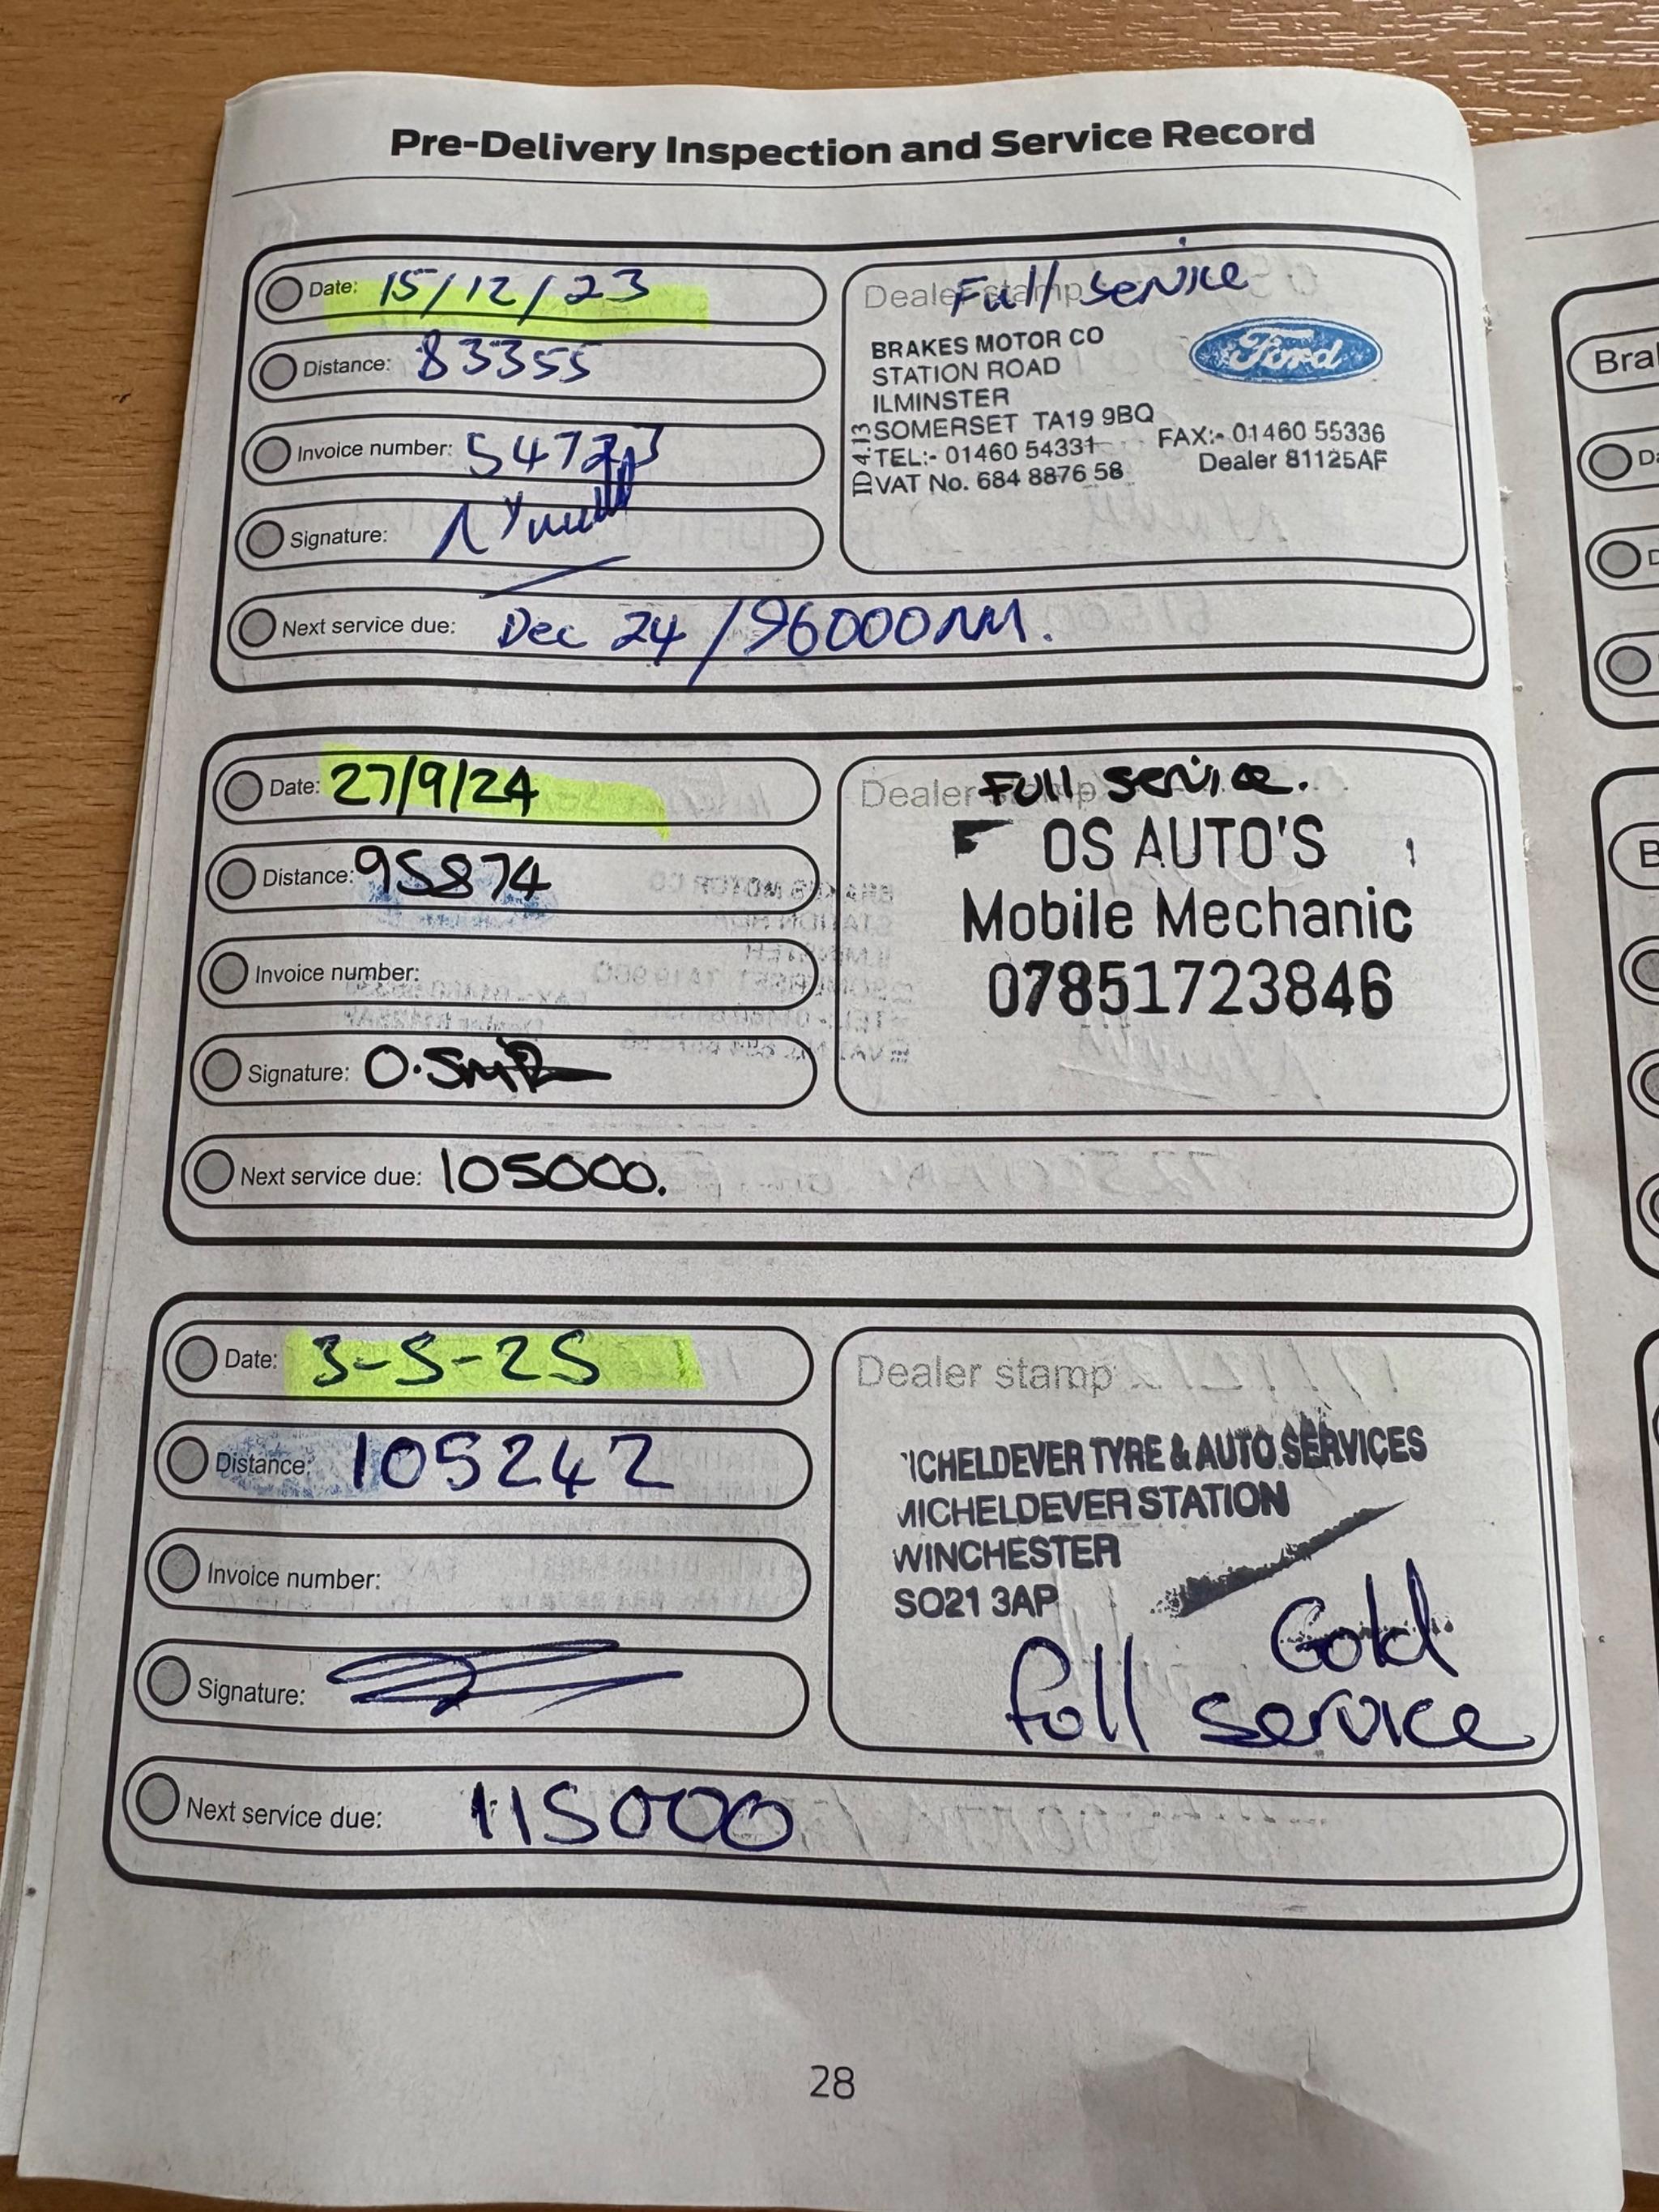 Pre-Delivery Inspection and Service Record
Date: 15/12/23
Distance: 83355
Invoice number:
Signature:
Next service due: Dec 24 / 96000
Dealer stamp
Full Service
BRAKES MOTOR CO
STATION ROAD
ILMINSTER
SOMERSET TA19 9BQ
TEL:- 01460 54331
VAT No. 684 8876 58
ID 4.13
Ford
FAX:- 01460 55336
Dealer 81125AF
Date: 27/9/24
Distance: 95874
Invoice number:
Signature:
Next service due: 105000.
Dealer stamp
Full service.
OS AUTO'S
Mobile Mechanic
07851723846
Date: 3-5-25
Distance: 105242
Invoice number:
Signature:
Next service due: 115000
Dealer stamp
ICHELDEVER TYRE & AUTO SERVICES
MICHELDEVER STATION
WINCHESTER
SO21 3AP
Gold
full service
28
Bra